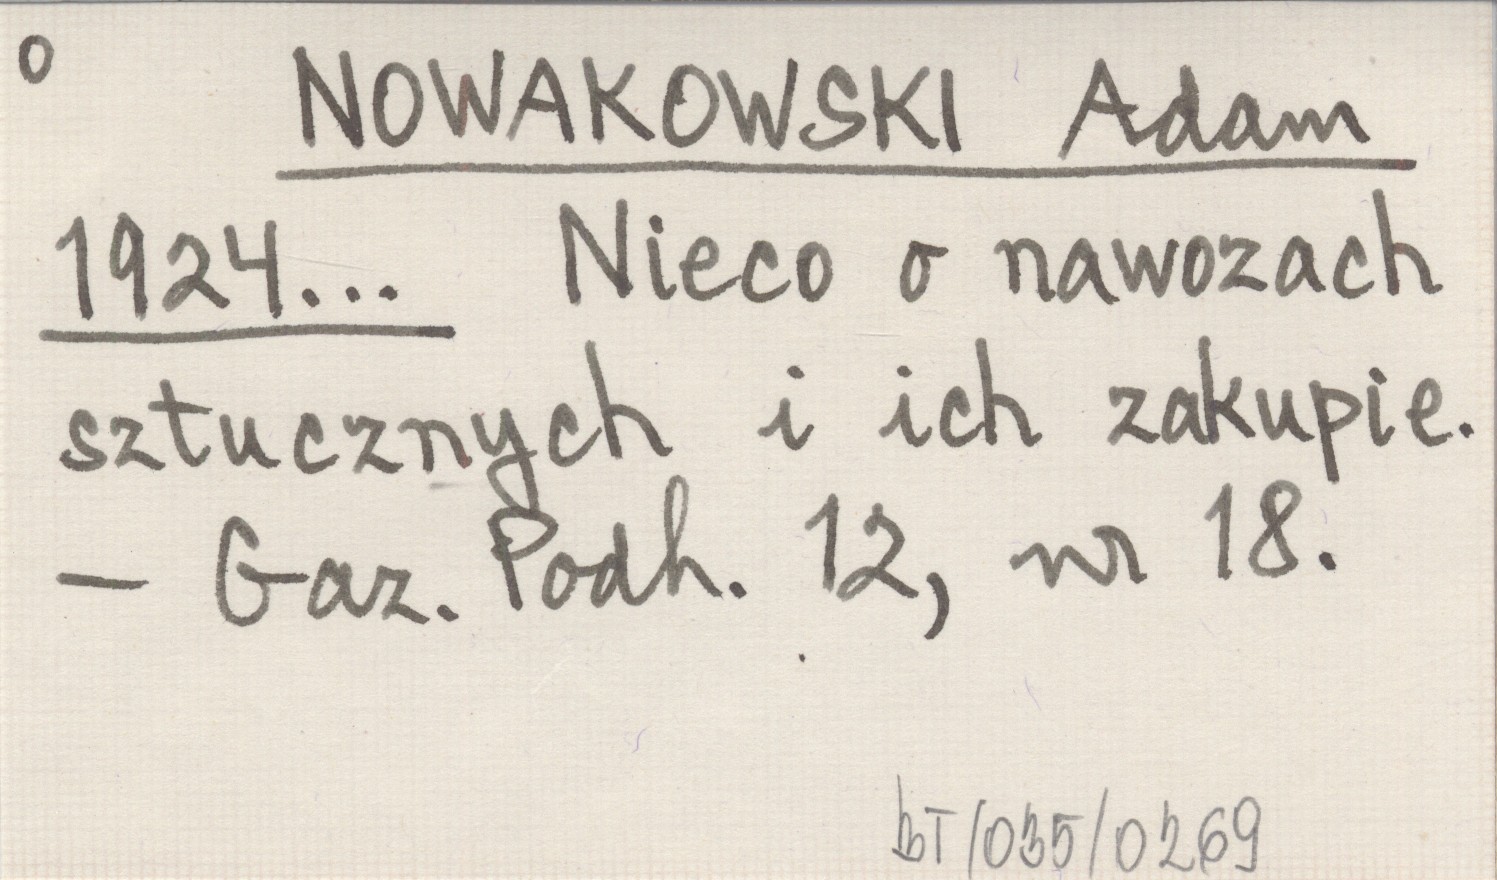 o
NOWAKOWSKI Adam
1924... Nieco o nawozach
sztucznych i ich zakupie.
— Gaz. Podh. 12, nr 18.
bT/035/0269